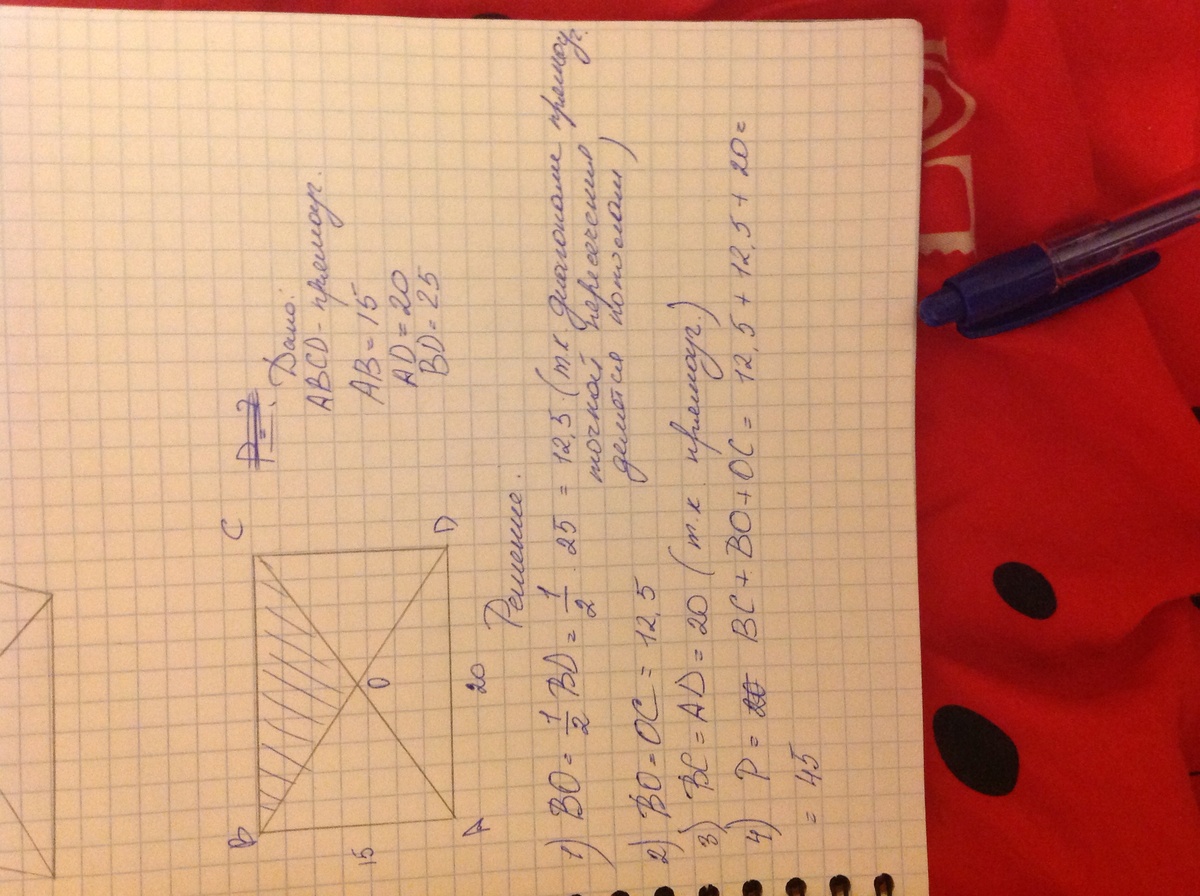 Дано:
ABCD - прямоуг.
AB = 15
AD = 20
BD = 25
B
C
15
O
A
D
20
Решение.
1) BO = 1/2 BD = 1/2 · 25 = 12,5 (т.к диагонали прямоуг.
точкой пересечения
делятся пополам)
2) BO = OC = 12,5
3) BC = AD = 20 (т.к прямоуг.)
4) P = BC + BO + OC = 12,5 + 12,5 + 20 =
= 45